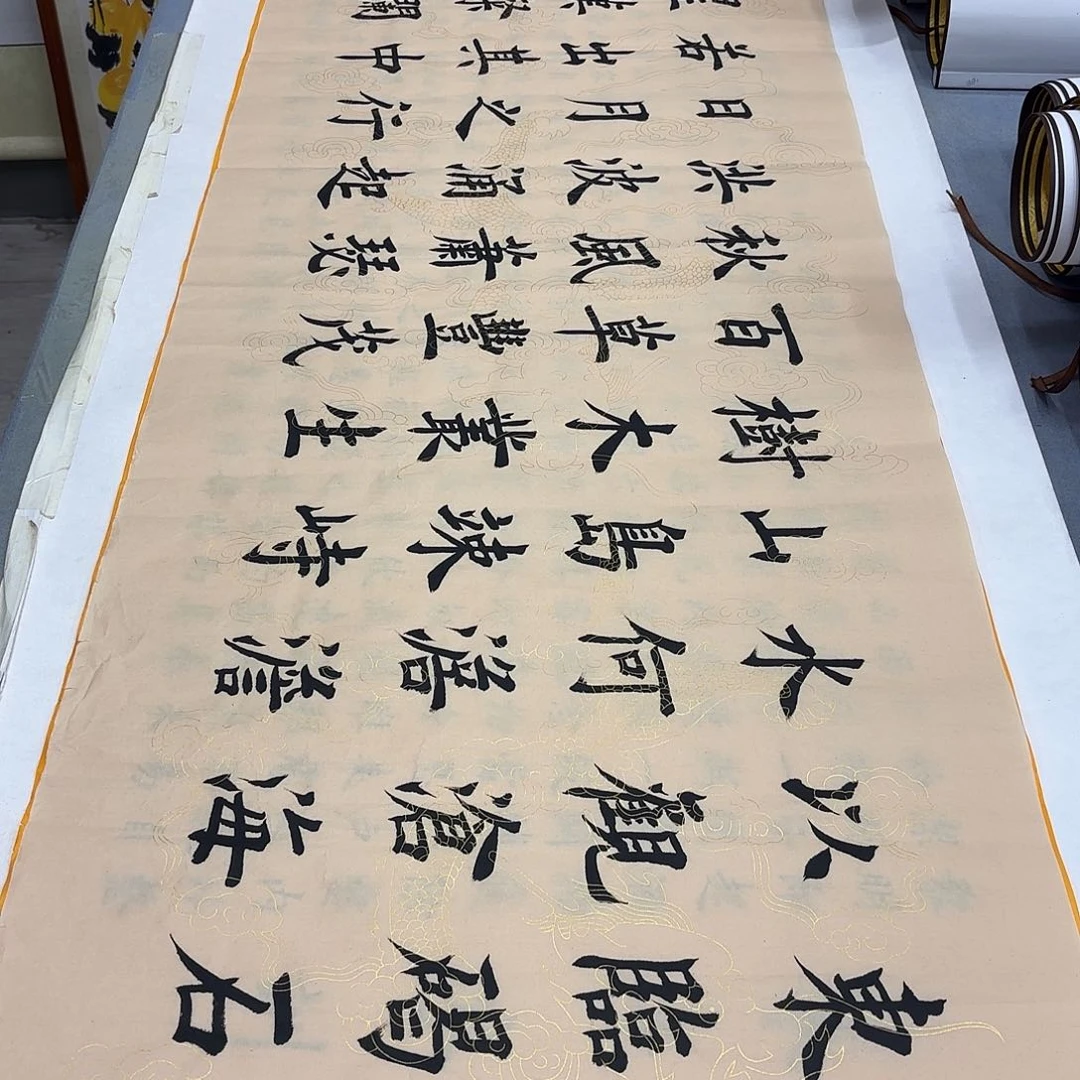 東臨碣石
以觀滄海
水何澹澹
山島竦峙
樹木叢生
百草豐茂
秋風蕭瑟
洪波涌起
日月之行
若出其中